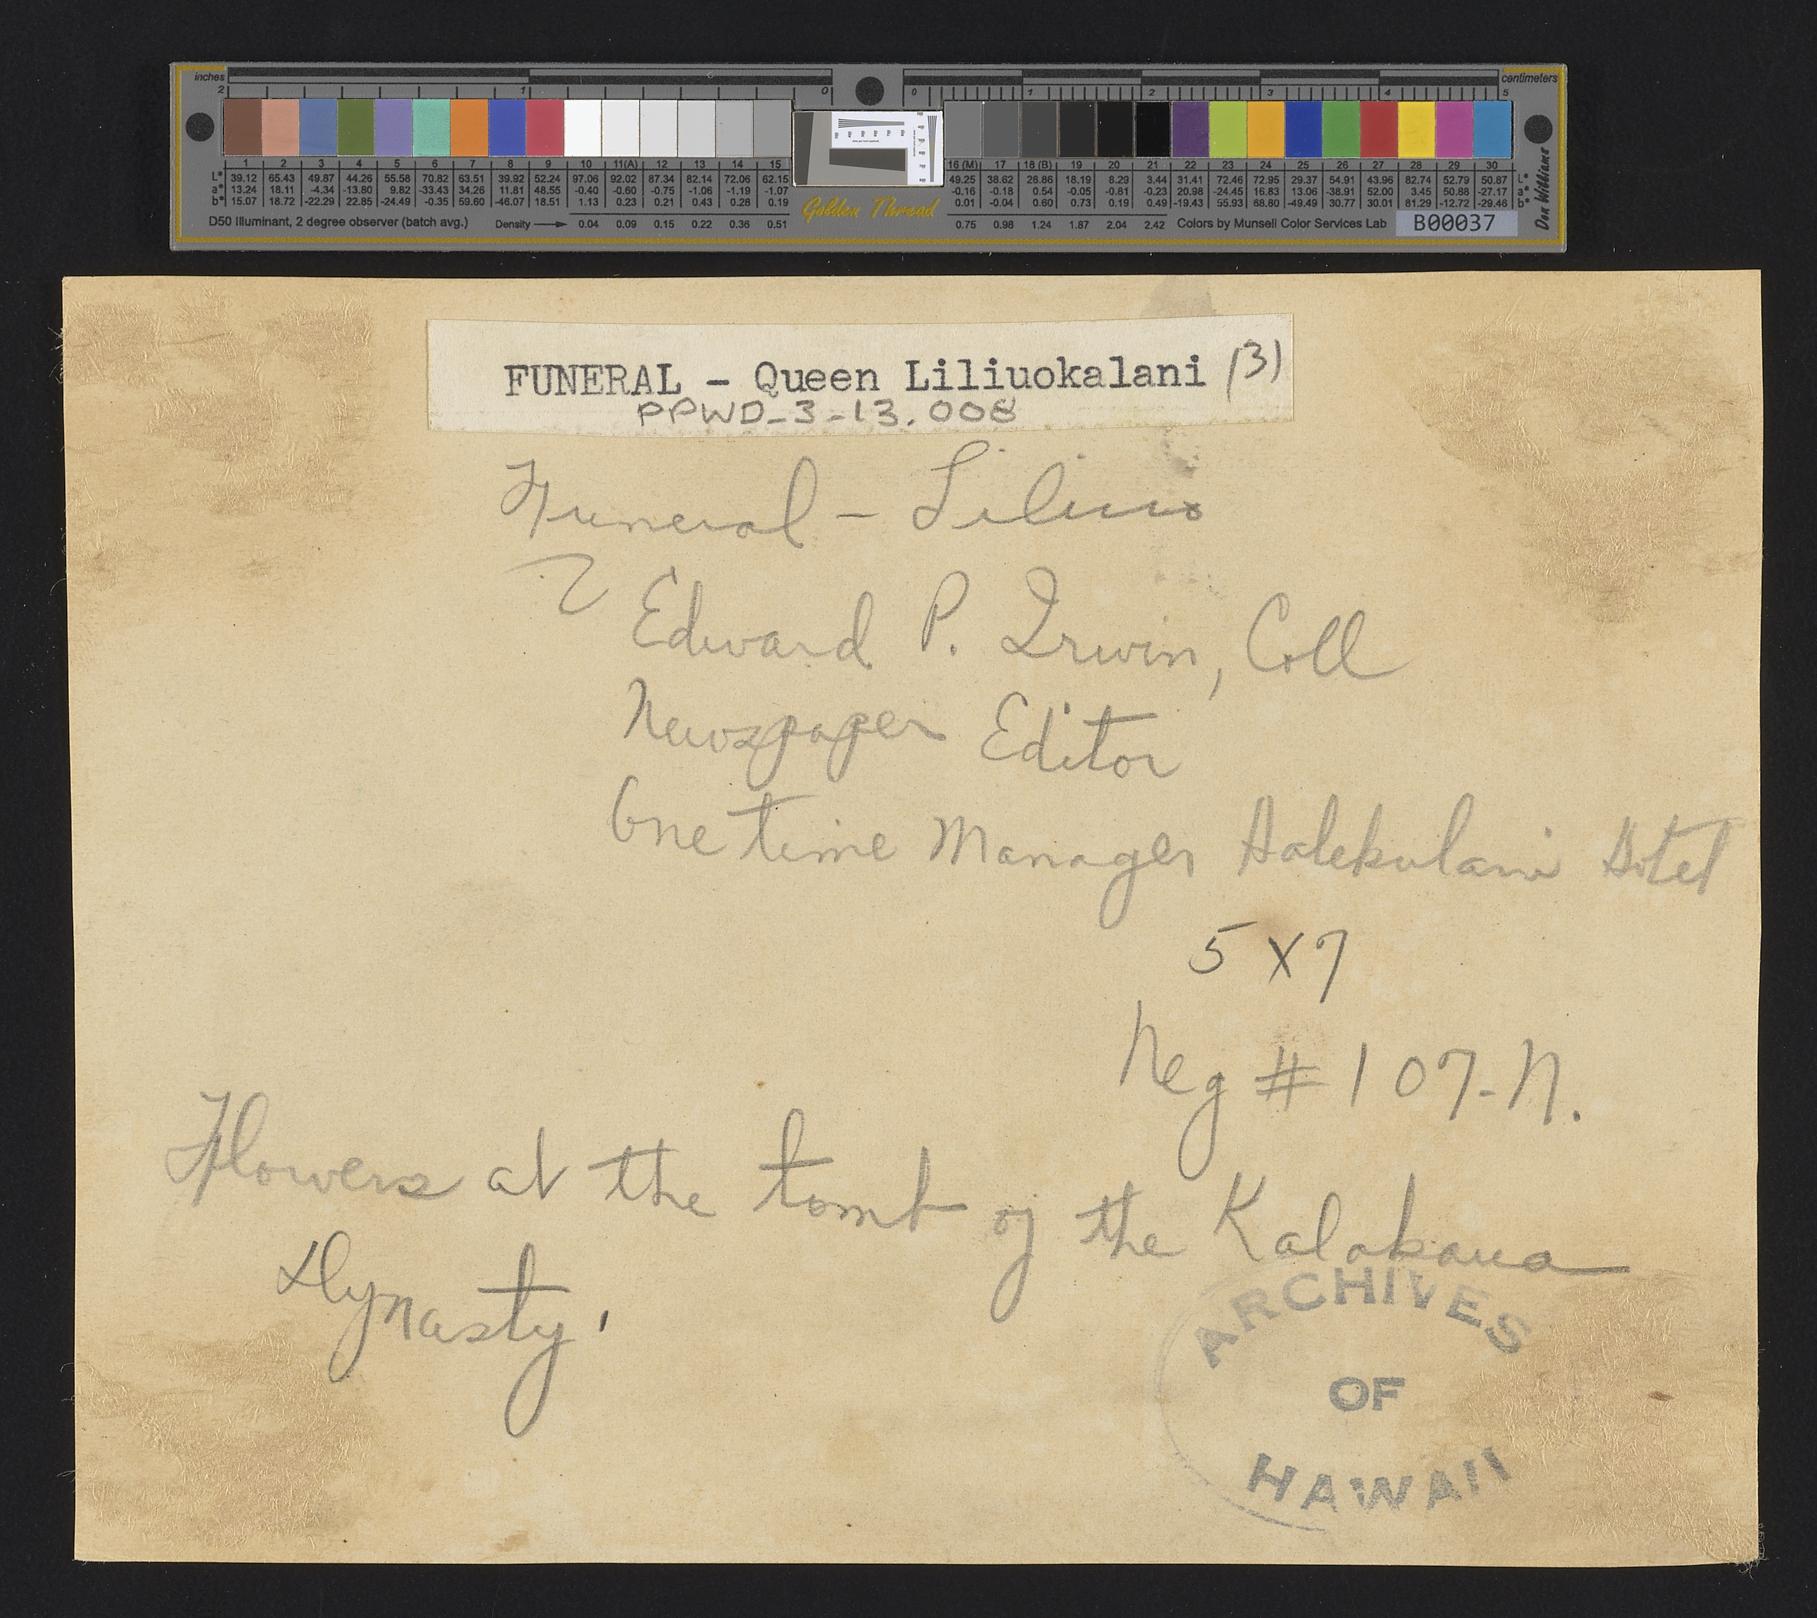 inches
centimeters
2 1 0 0 1 2 3 4 5
1 2 3 4 5 6 7 8 9 10 11(A) 12 13 14 15 16 (M) 17 18 (B) 19 20 21 22 23 24 25 26 27 28 29 30
L* 39.12 65.43 49.87 44.26 55.58 70.82 63.51 39.92 52.24 97.06 92.02 87.34 82.14 72.06 62.15 49.25 38.62 28.86 18.19 8.29 3.44 31.41 72.46 72.95 29.37 54.91 43.96 82.74 52.79 50.87 L*
a* 13.24 18.11 -4.34 -13.80 9.82 -33.43 34.26 11.81 48.55 -0.40 -0.60 -0.75 -1.06 -1.19 -1.07 -0.16 -0.18 0.54 -0.05 -0.81 -0.23 20.98 -24.45 16.83 13.06 -38.91 52.00 3.45 50.88 -27.17 a*
b* 15.07 18.72 -22.29 22.85 -24.49 -0.35 59.60 -46.07 18.51 1.13 0.23 0.21 0.43 0.28 0.19 0.01 -0.04 0.60 0.73 0.19 0.49 -19.43 55.93 68.80 -49.49 30.77 30.01 81.29 -12.72 -29.46 b*
D50 Illuminant, 2 degree observer (batch avg.) Density 0.04 0.09 0.15 0.22 0.36 0.51 Golden Thread 0.75 0.98 1.24 1.87 2.04 2.42 Colors by Munsell Color Services Lab B00037
Don Williams
FUNERAL - Queen Liliuokalani (3)
PPWD-3-13.008
Funeral - Liliuo
Edward P. Irwin, Coll
Newspaper Editor
One time Manager Halekulani Hotel
5 X 7
Neg # 107-N.
Flowers at the tomb of the Kalakaua
Dynasty.
ARCHIVES
OF
HAWAII